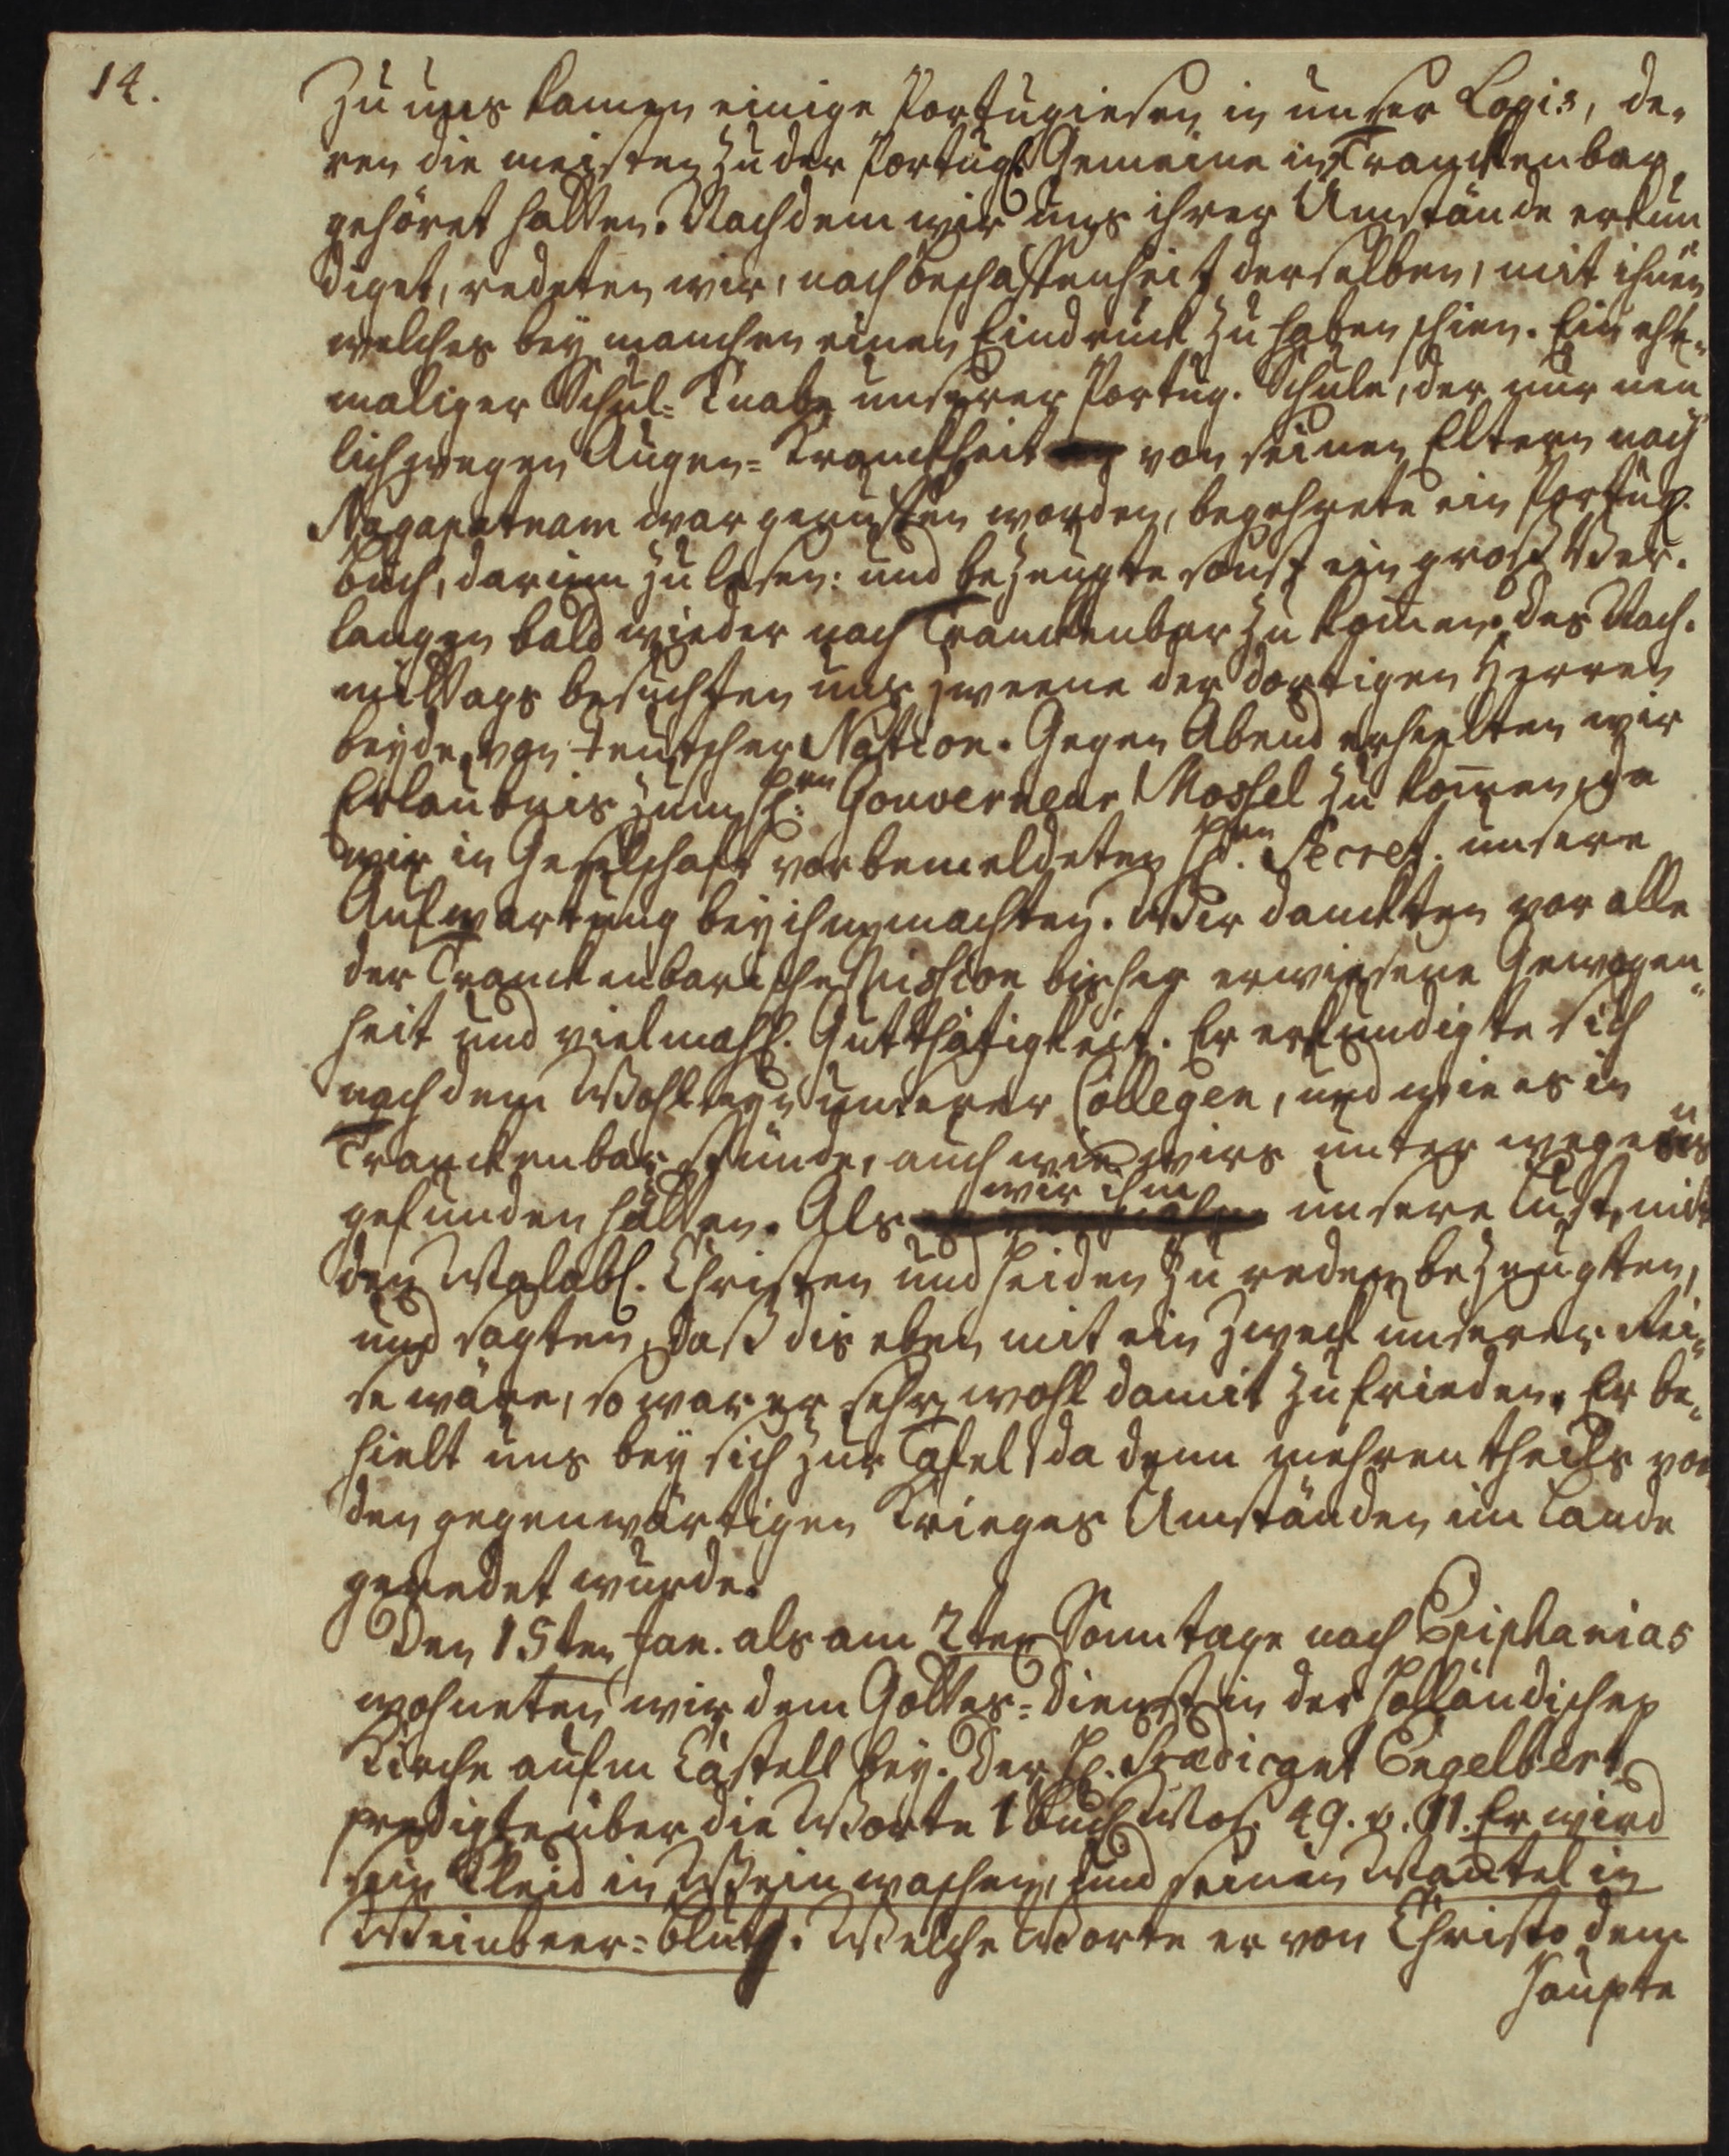 14.
Zu uns kamen einige Portugiesen in unser Logis, de-
ren die meisten zu der Portugs. Gemeine in Tranckenbar
gehöret hatten. Nachdem wir uns ihrer Umstände erkun
diget, redeten wir, nach beschaffenheit derselben, mit ihnen
welches bey manchen einen Eindruck zu haben schien. Ein ehe-
maliger Schul-Knabe unserer Portug. Schule, der nur neu
lich wegen Augen-Kranckheit von seinen Eltern nach
Nagapatnam war geruffen worden, begehrete ein Portug.
buch, darinn zu lesen: und bezeugte sonst ein groß Ver-
langen bald wieder nach Tranckenbar zu komen. des Nach-
mittags besuchten uns zweene der dortigen Herren
beyde von teutscher Nation. Gegen Abend erhielten wir
Erlaubnis zum H.rn Gouverneur Mossel zu komen, da
wir in Geselschaft vorbemeldeten H.rn Secret. unsere
Aufwartung bey ihm machten. Wir danckten vor alle
der Tranckenbarische Mission bisher erwiesene Gewogen-
heit und vielmahl. Gutthätigkeit. Er erkundigte sich
nach dem Wohlseyn unserer Collegen, und wie es in
Tranckenbar stünde, auch wie wirs unter wegens
gefunden hätten. Als wir ihm unsere Lust, mit
den Malabs. Christen und Heiden zu reden bezeugten,
und sagten, daß dis eben mit ein Zweck unserer Rei-
se wäre, so war er sehr wohl damit zufrieden. Er be-
hielt uns bey sich zur Tafel, da denn mehrentheils von
den gegenwärtigen Krieges Umständen im Lande
geredet wurde.
Den 15ten Jan. als am 2ten Sonntage nach Epiphanias
wohneten wir dem Gottes-dienst in der Holländischen
Kirche aufm Castell bey. Der H. Prædicant Engelbert
predigte über die Worte 1 Buch Mos. 49. v. 11. Er wird
sein Kleid in Wein waschen, und seinen Mantel in
Weinbeer-blut. Welche Worte er von Christo dem
Haupte